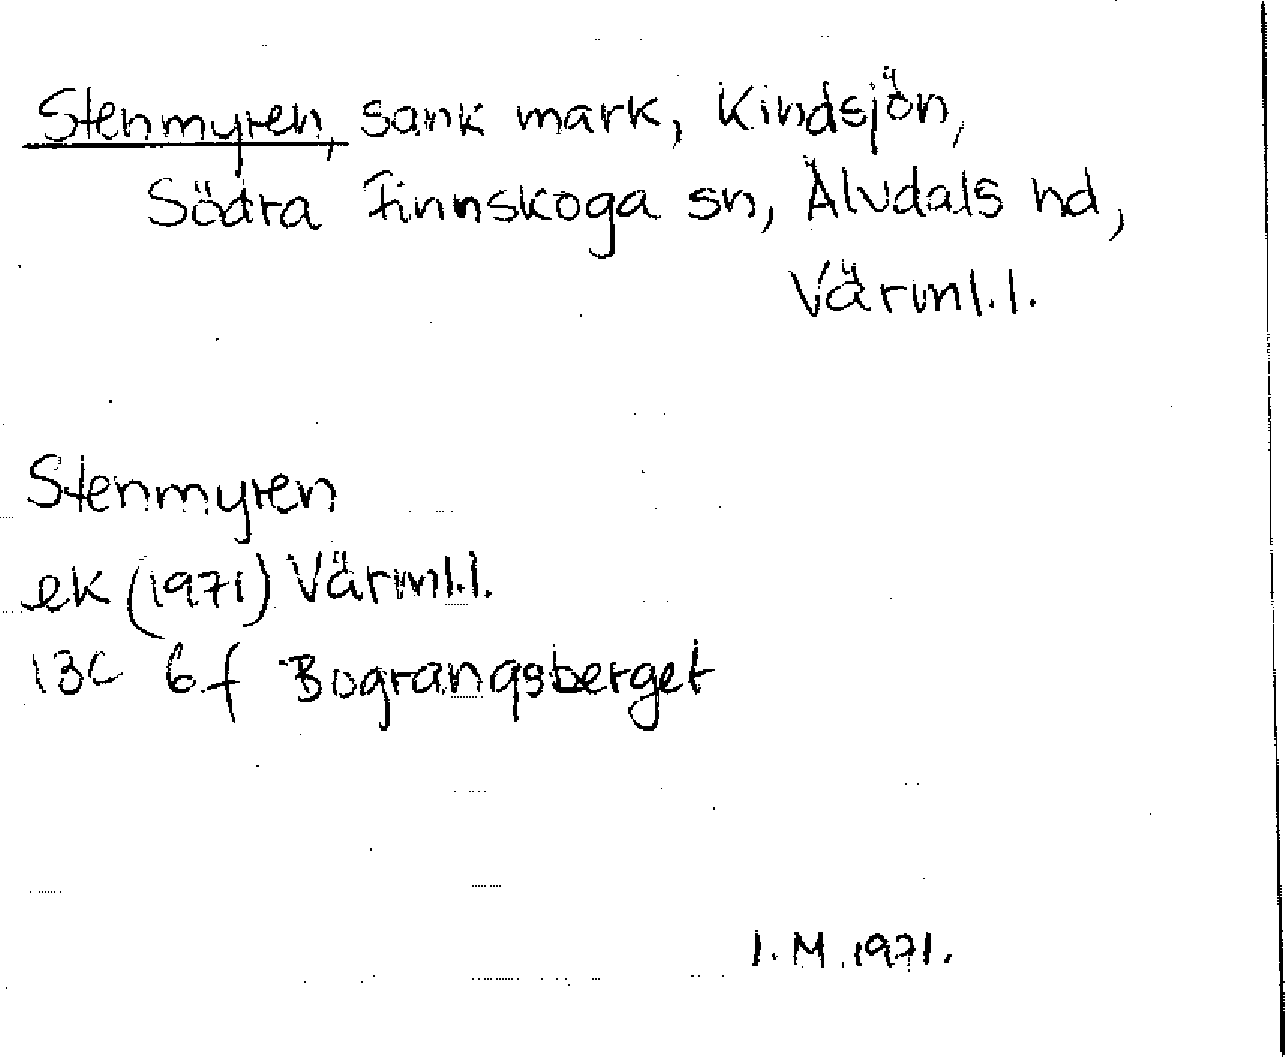 Stenmyren, sank mark, Kindsjön,
Södra Finnskoga sn, Älvdals hd,
Värml.l.
Stenmyren
ek (1971) Värml.l.
13C 6f Bograngsberget
I.M.1971.